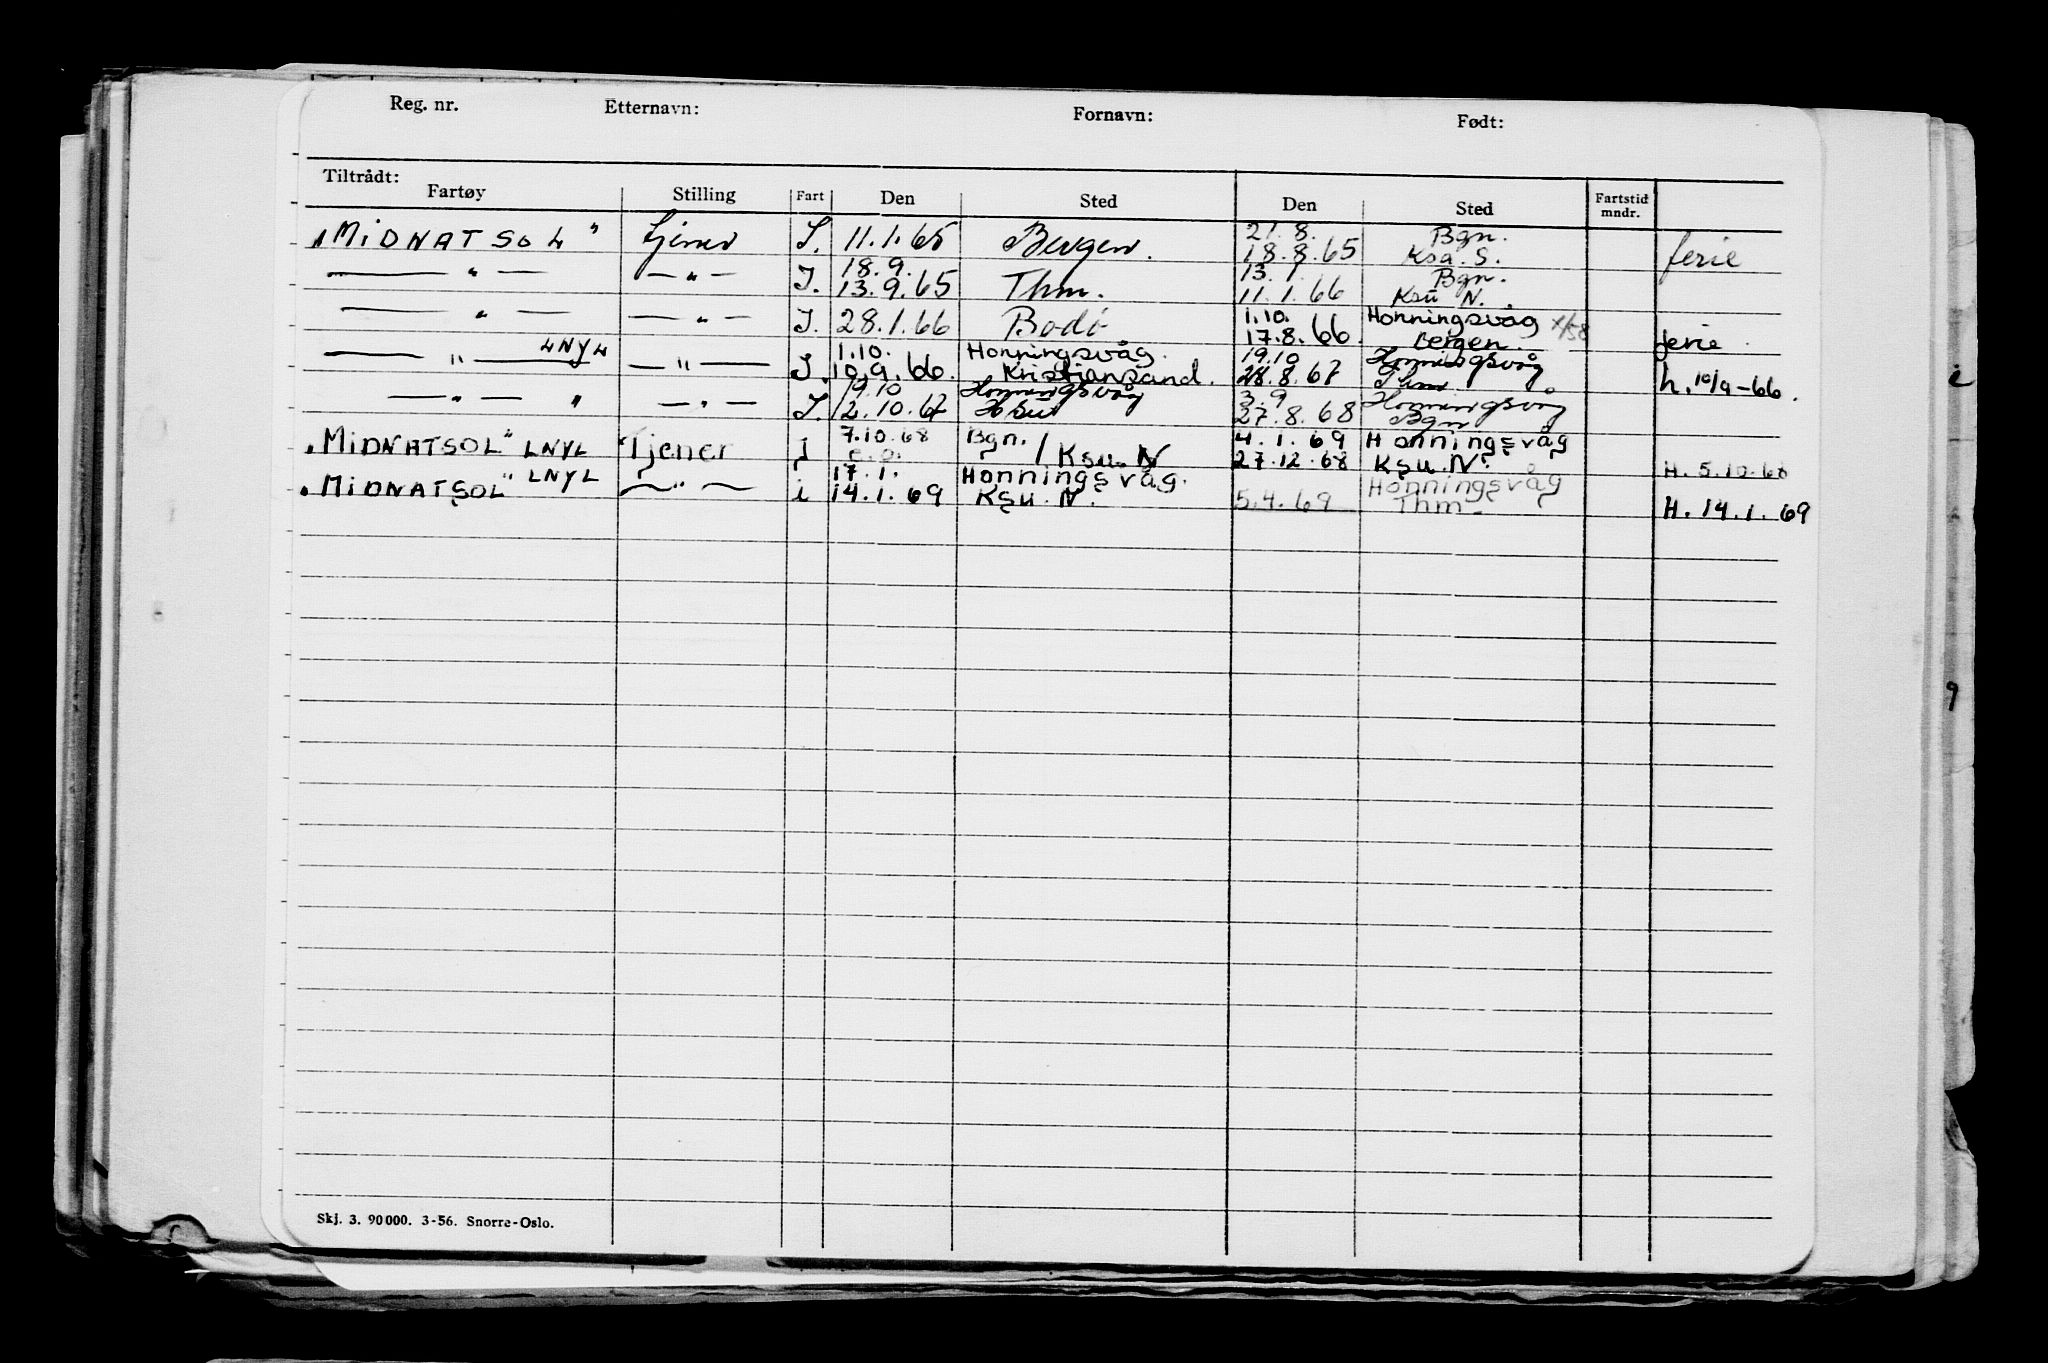 Reg. nr. Etternavn: Fornavn: Født:
Tiltrådt:
Fartøy Stilling Fart Den Sted Den Sted Fartstid mndr.
21.8. Bgn.
"MIDNATSOL" tjener I. 11.1.65 Bergen. 18.8.65 Ksa. S. ferie
18.9. 13.1. Bgn.
— " — — " — I. 13.9.65 Thm. 11.1.66 Ksu N.
1.10. Honningsvåg
— " — — " — I. 28.1.66 Bodø 17.8.66 Bergen. ferie
LNYL 1.10. Honningsvåg. 19.10 Honningsvåg
— " — — " — I. 10.9.66. Kristiansand. 28.8.67 Thm h. 10/9-66.
19.10 Honningsvåg 3.9 Honningsvåg
— " — " — " — I. 2.10.67 Ksu 27.8.68 Bgn
7.10.68 Bgn. 4.1.69 Honningsvåg
"MIDNATSOL" LNYL Tjener I e.o. / Ksu. N 27.12.68 Ksu. N. H. 5.10.68
LNYL 17.1. Honningsvåg. Honningsvåg
"MIDNATSOL" — " — i 14.1.69 Ksu. N. 5.4.69 Thm H. 14.1.69
Skj. 3. 90000. 3-56. Snorre-Oslo.